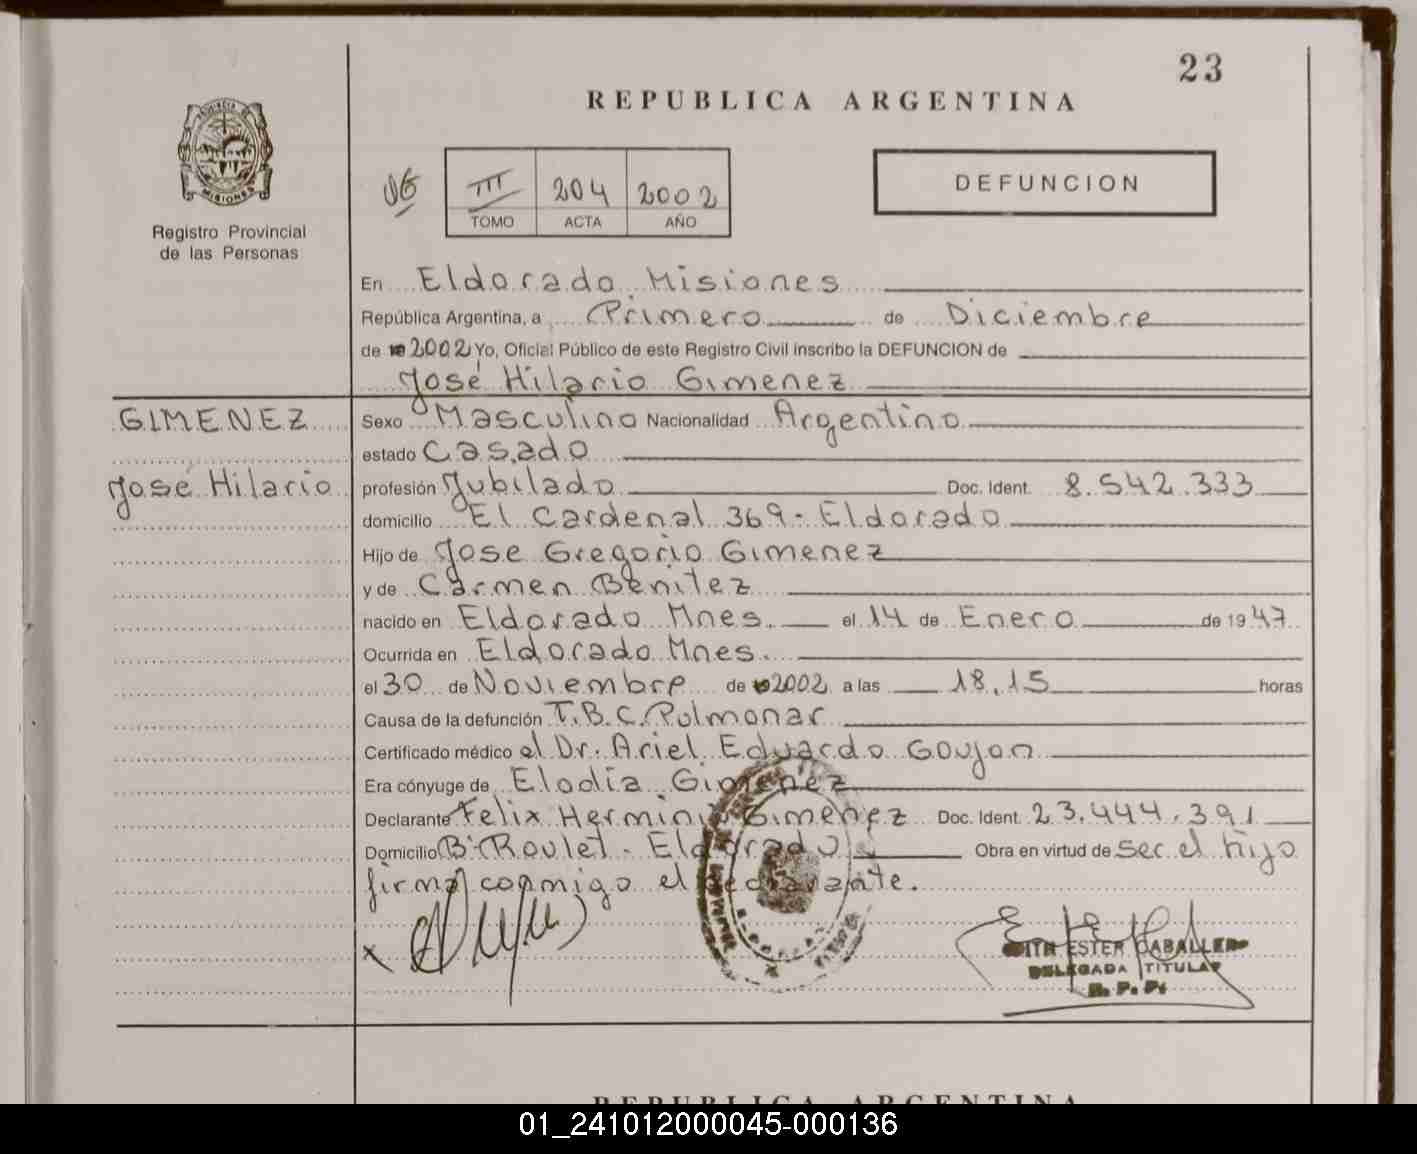 23
REPUBLICA ARGENTINA
PROVINCIA DE
MISIONES
Registro Provincial
de las Personas
III 204 2002
TOMO ACTA AÑO
DEFUNCION
En Eldorado Misiones
República Argentina, a Primero de Diciembre
de 2002 Yo, Oficial Público de este Registro Civil inscribo la DEFUNCION de
José Hilario Gimenez
GIMENEZ
José Hilario
Sexo Masculino Nacionalidad Argentino
estado Casado
profesión Jubilado Doc. Ident. 8.542.333
domicilio El Cardenal 369- Eldorado
Hijo de Jose Gregorio Gimenez
y de Carmen Benitez
nacido en Eldorado Mnes. el 14 de Enero de 1947
Ocurrida en Eldorado Mnes.
el 30 de Noviembre de 2002 a las 18.15 horas
Causa de la defunción T.B.C. Pulmonar
Certificado médico el Dr. Ariel Eduardo Goujon
Era cónyuge de Elodia Gimenez
Declarante Felix Herminio Gimenez Doc. Ident. 23.444.391
Domicilio B° Roulet - Eldorado Obra en virtud de ser el hijo
firma conmigo el declarante.
x
ESTER CABALLERO
DELEGADA TITULAR
R. P. P.
REPUBLICA ARGENTINA
01_241012000045-000136